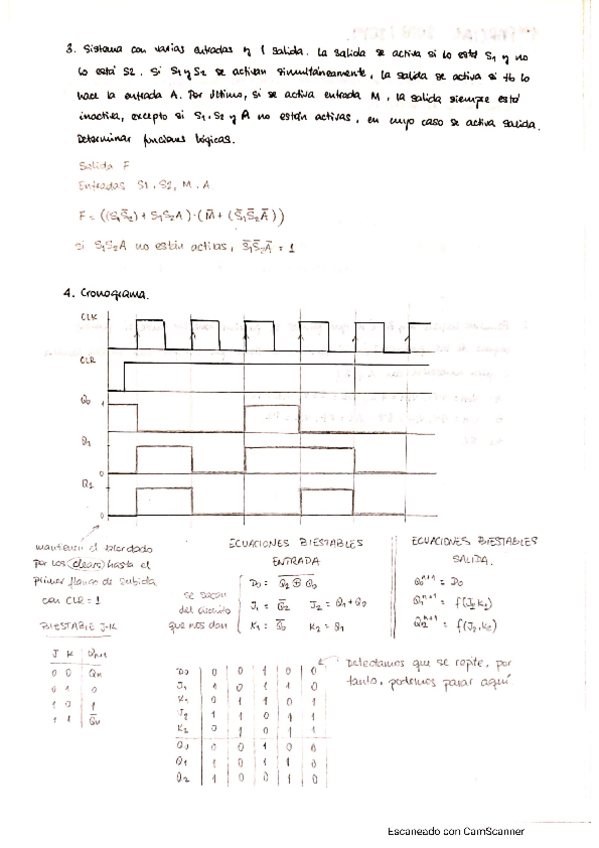 3. Sistema con varias entradas y 1 salida. La salida se activa si lo está S1 y no
lo está S2. Si S1 y S2 se activan simultáneamente, la salida se activa si tb lo
hace la entrada A. Por último, si se activa entrada M, la salida siempre está
inactiva, excepto si S1, S2 y A no están activas, en cuyo caso se activa salida.
Determinar funciones lógicas.
Salida F
Entradas S1, S2, M, A
F = ((S1S̄2) + S1S2A) · (M̄ + (S̄1S̄2Ā))
si S1S2A no están activas, S̄1S̄2Ā = 1
4. Cronograma.
CLK
CLR
Q0 1
Q1
0
Q2
0
mantienen el valor dado
por los (clears) hasta el
primer flanco de subida
con CLR = 1
BIESTABLE J-K
J K Qn+1
0 0 Qn
0 1 0
1 0 1
1 1 Q̄n
se sacan
del circuito
que nos dan
ECUACIONES BIESTABLES
ENTRADA
J1 = Q̄2 J2 = Q1 + Q0
K1 = Q̄0 K2 = Q1
ECUACIONES BIESTABLES
SALIDA.
Q0ⁿ⁺¹ = D0
Q2ⁿ⁺¹ = f(J2, K2)
D0 0 0 1 0 0
J1 1 0 1 1 0
K1 0 1 1 0 1
J2 1 1 0 1 1
K2 0 1 0 1 1
Q0 0 0 1 0 0
Q1 1 0 1 1 0
Q2 1 0 0 1 0
Detectamos que se repite, por
tanto, podemos parar aquí
Escaneado con CamScanner